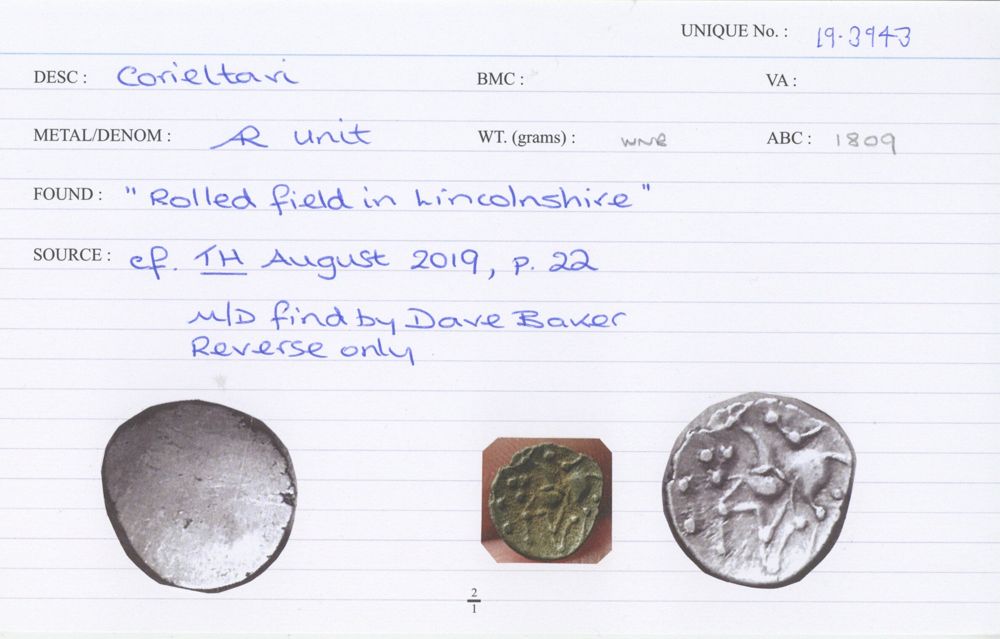 UNIQUE No. : 19.3943
DESC : Corieltavi BMC : VA :
METAL/DENOM : AR unit WT. (grams) : WNR ABC : 1809
FOUND : "Rolled field in Lincolnshire"
SOURCE : cf. TH August 2019, p. 22
M/D find by Dave Baker
Reverse only
2
1